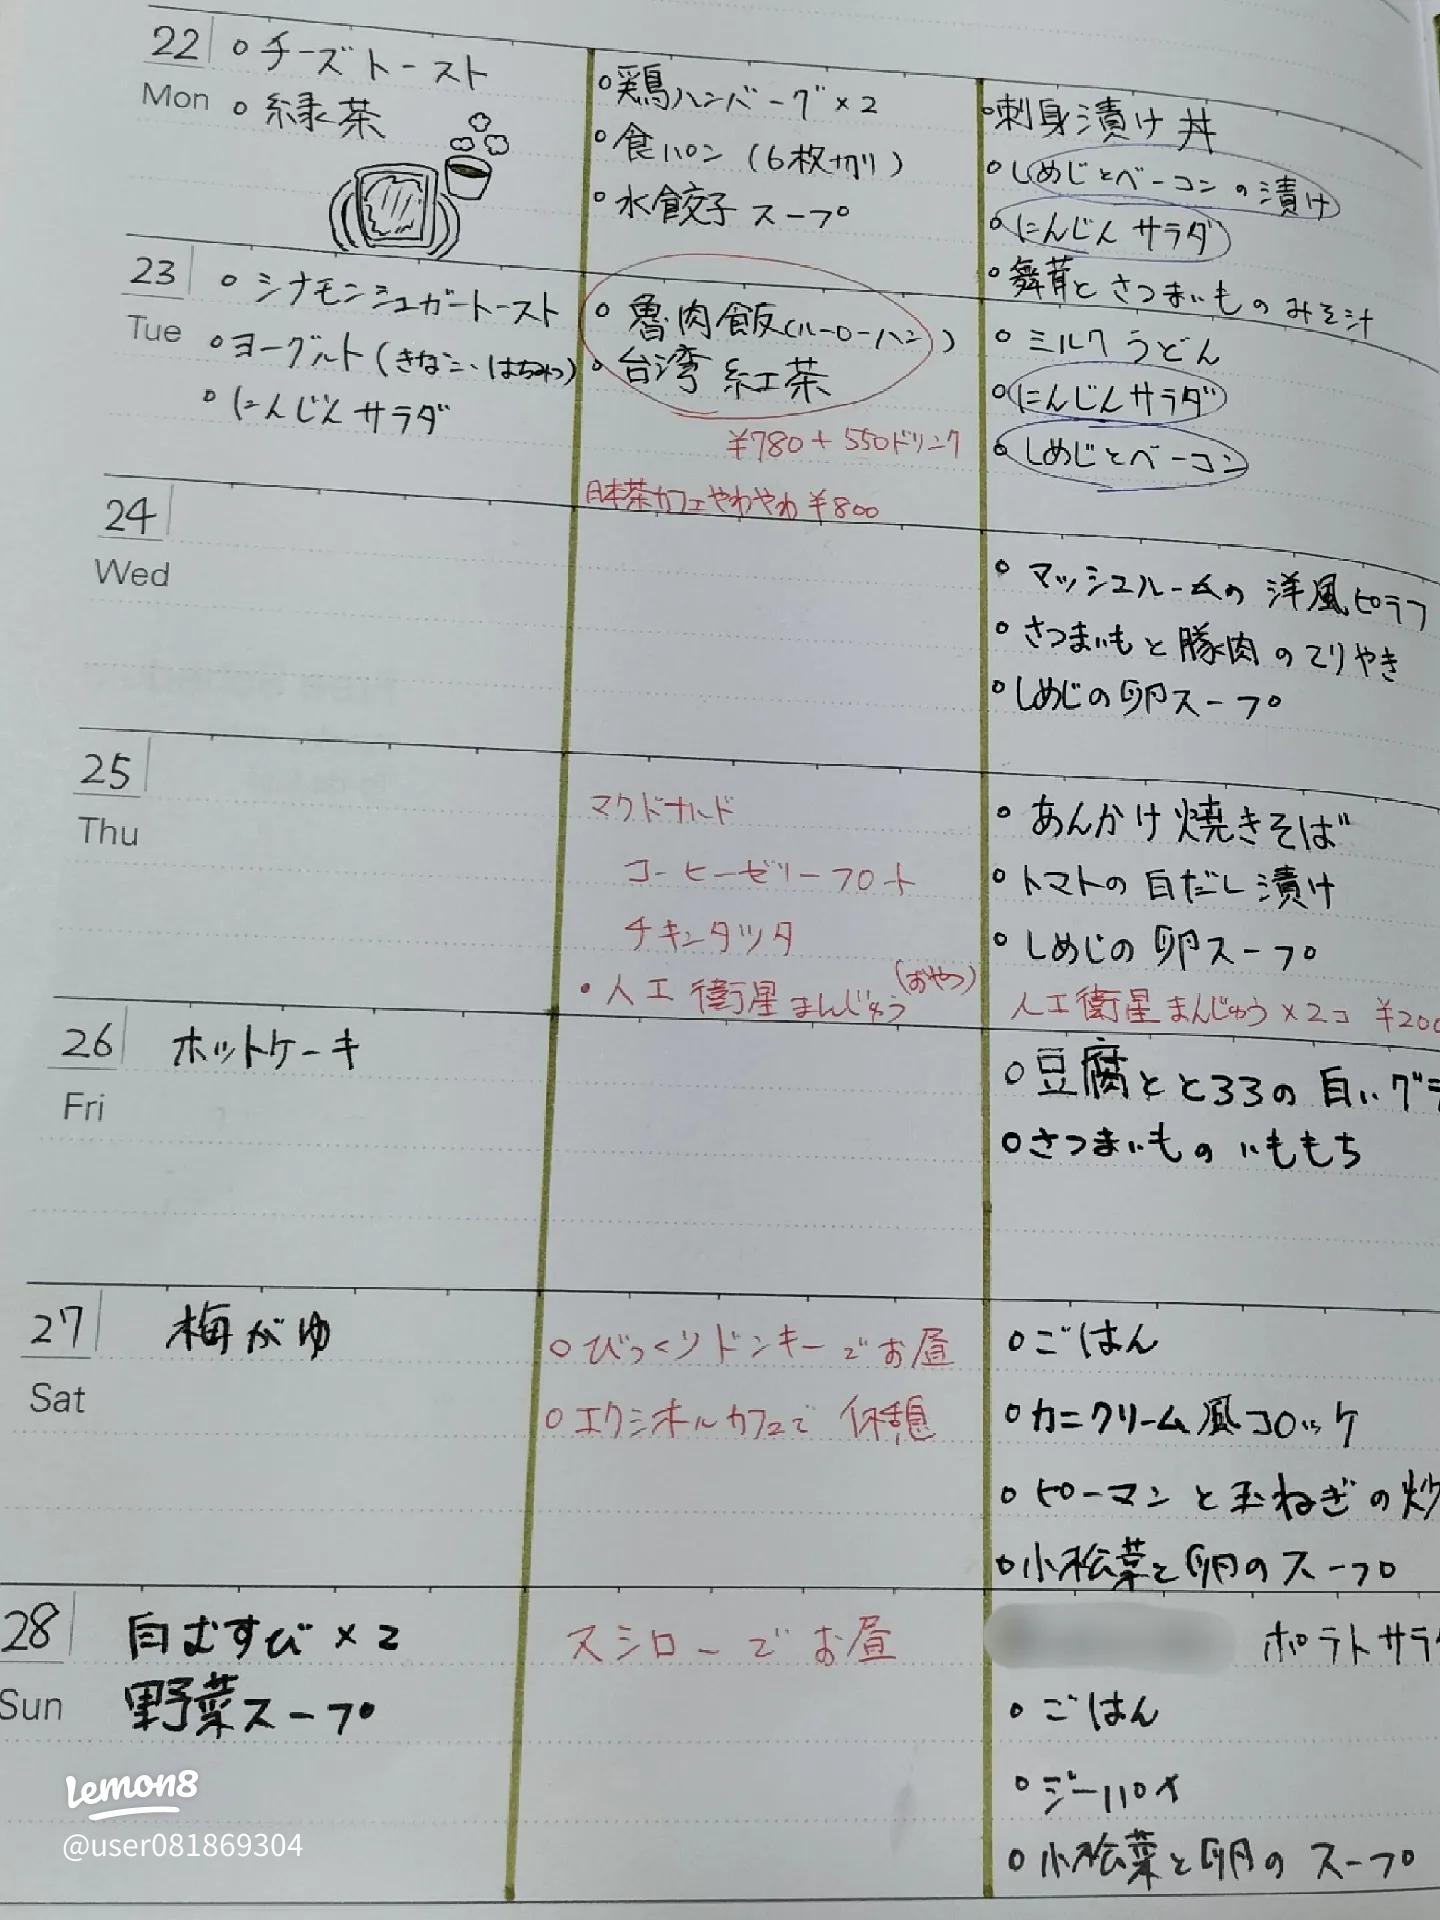 22
Mon
○チーズトースト
○緑茶
○鶏ハンバーグ×2
○食パン(6枚切り)
○水餃子スープ
○刺身漬け丼
○しめじとベーコンの漬け
○にんじんサラダ
○舞茸とさつまいものみそ汁
23
Tue
○シナモンシュガートースト
○ヨーグルト(きなこ、はちみつ)
○にんじんサラダ
○魯肉飯(ルーローハン)
○台湾紅茶
¥780+550ドリンク
日本茶カフェやわやわ¥800
○ミルクうどん
○にんじんサラダ
○しめじとベーコン
24
Wed
○マッシュルームの洋風ピラフ
○さつまいもと豚肉のてりやき
○しめじの卵スープ
25
Thu
マクドナルド
コーヒーゼリーフロート
チキンタツタ
・人工衛星まんじゅう(おやつ)
○あんかけ焼きそば
○トマトの白だし漬け
○しめじの卵スープ
人工衛星まんじゅう×2コ ¥200
26
Fri
ホットケーキ
○豆腐ととろろの白いグラ
○さつまいものいももち
27
Sat
梅がゆ
○びっくりドンキーでお昼
○エクシオールカフェで休憩
○ごはん
○カニクリーム風コロッケ
○ピーマンと玉ねぎの炒
○小松菜と卵のスープ
28
Sun
白むすび×2
野菜スープ
スシローでお昼
ポテトサラ
○ごはん
○ジーパイ
○小松菜と卵のスープ
lemon8
@user081869304